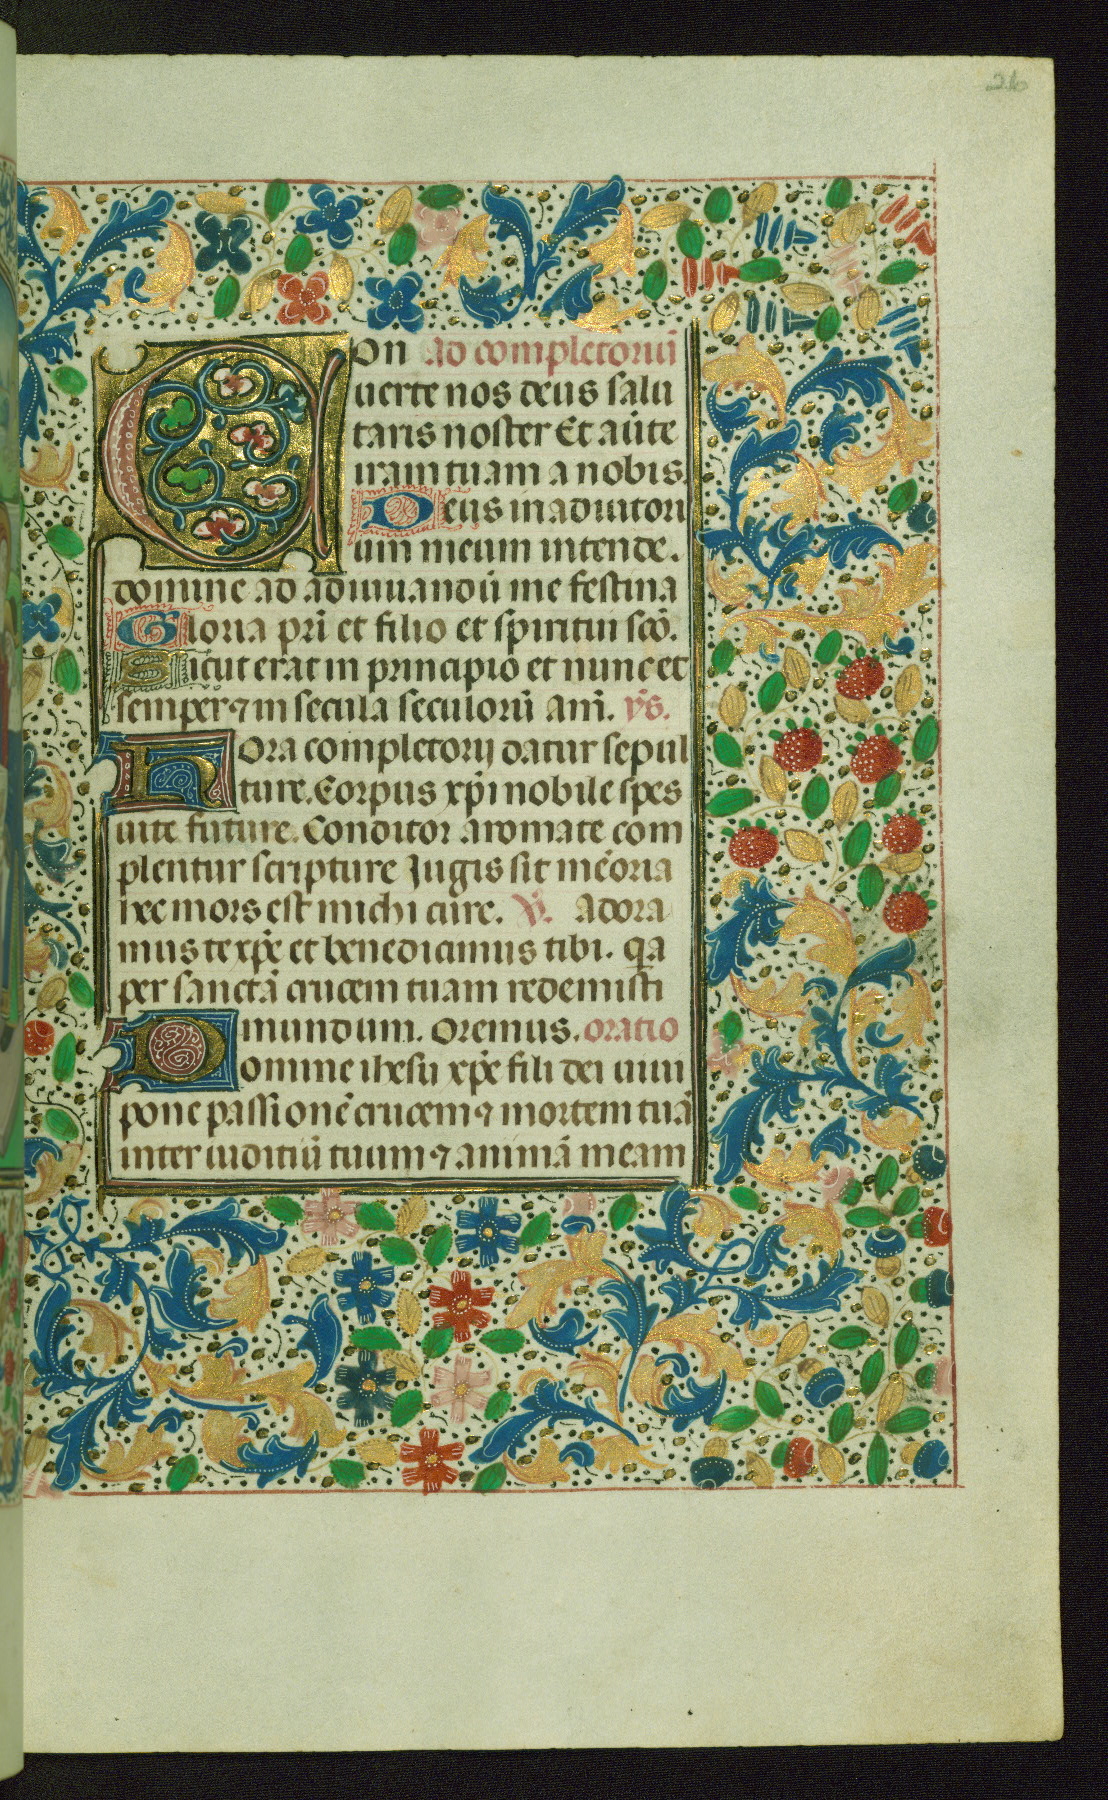 26
Con Ad completoriū
uerte nos deus salu
taris noster Et aūte
iram tuam a nobis
Deus in adiutori
um meum intende.
domine ad adiuuandū me festina
Gloria pr̄i et filio et spiritui scō.
Sicut erat in principio et nunc et
semper ⁊ in secula seculorū am̄. ym̄s.
Hora completorij datur sepul
ture. Corpus xp̄i nobile spes
uite future. Conditor aromate com
plentur scripture Jugis sit mēoria
hec mors est michi cure. V̄. Adora
mus te xp̄e et benedicimus tibi. qa
per sanctā crucem tuam redemisti
mundum. Oremus. oratio
Domine ihesu xp̄e fili dei uiui
pone passionē crucem ⁊ mortem tuā
inter iuditiū tuum ⁊ animā meam